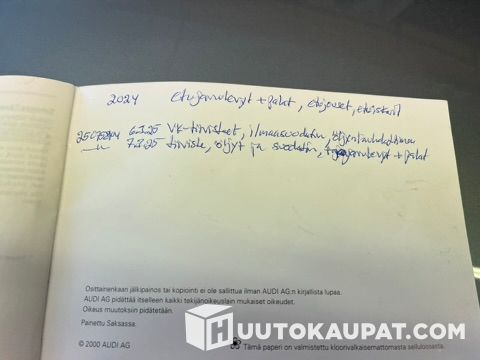 2024 etujarrulevyt + palat, etujouset, etuiskarit
6.3.25 VK-tiivisteet, ilmansuodatin,
7.3.25 tiiviste, öljyt ja suodatin, jarrulevyt + palat
Osittainenkaan jälkipainos tai kopiointi ei ole sallittua ilman AUDI AG:n kirjallista lupaa.
AUDI AG pidättää itselleen kaikki tekijänoikeuslain mukaiset oikeudet.
Oikeus muutoksiin pidätetään.
Painettu Saksassa.
Tämä paperi on valmistettu kloorivalkaisemattomasta selluloosasta.
© 2000 AUDI AG
HUUTOKAUPAT.COM